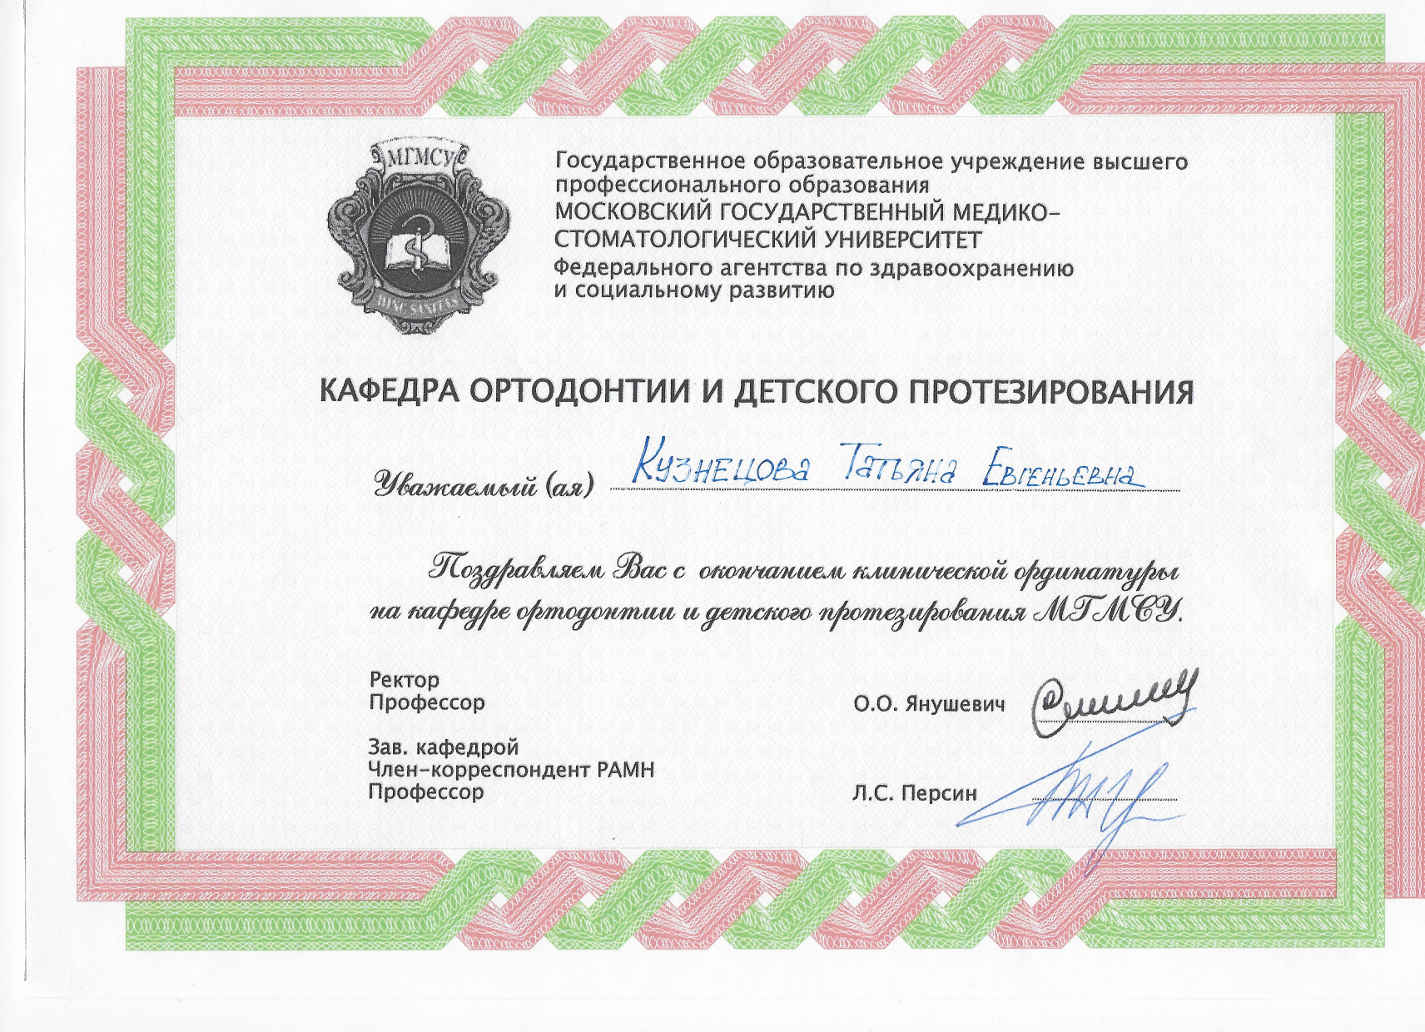 МГМСУ
Государственное образовательное учреждение высшего
профессионального образования
МОСКОВСКИЙ ГОСУДАРСТВЕННЫЙ МЕДИКО-
СТОМАТОЛОГИЧЕСКИЙ УНИВЕРСИТЕТ
Федерального агентства по здравоохранению
и социальному развитию
HINC SANITAS
КАФЕДРА ОРТОДОНТИИ И ДЕТСКОГО ПРОТЕЗИРОВАНИЯ
Уважаемый (ая) Кузнецова Татьяна Евгеньевна
Поздравляем Вас с окончанием клинической ординатуры
на кафедре ортодонтии и детского протезирования МГМСУ.
Ректор
Профессор О.О. Янушевич
Зав. кафедрой
Член-корреспондент РАМН
Профессор Л.С. Персин